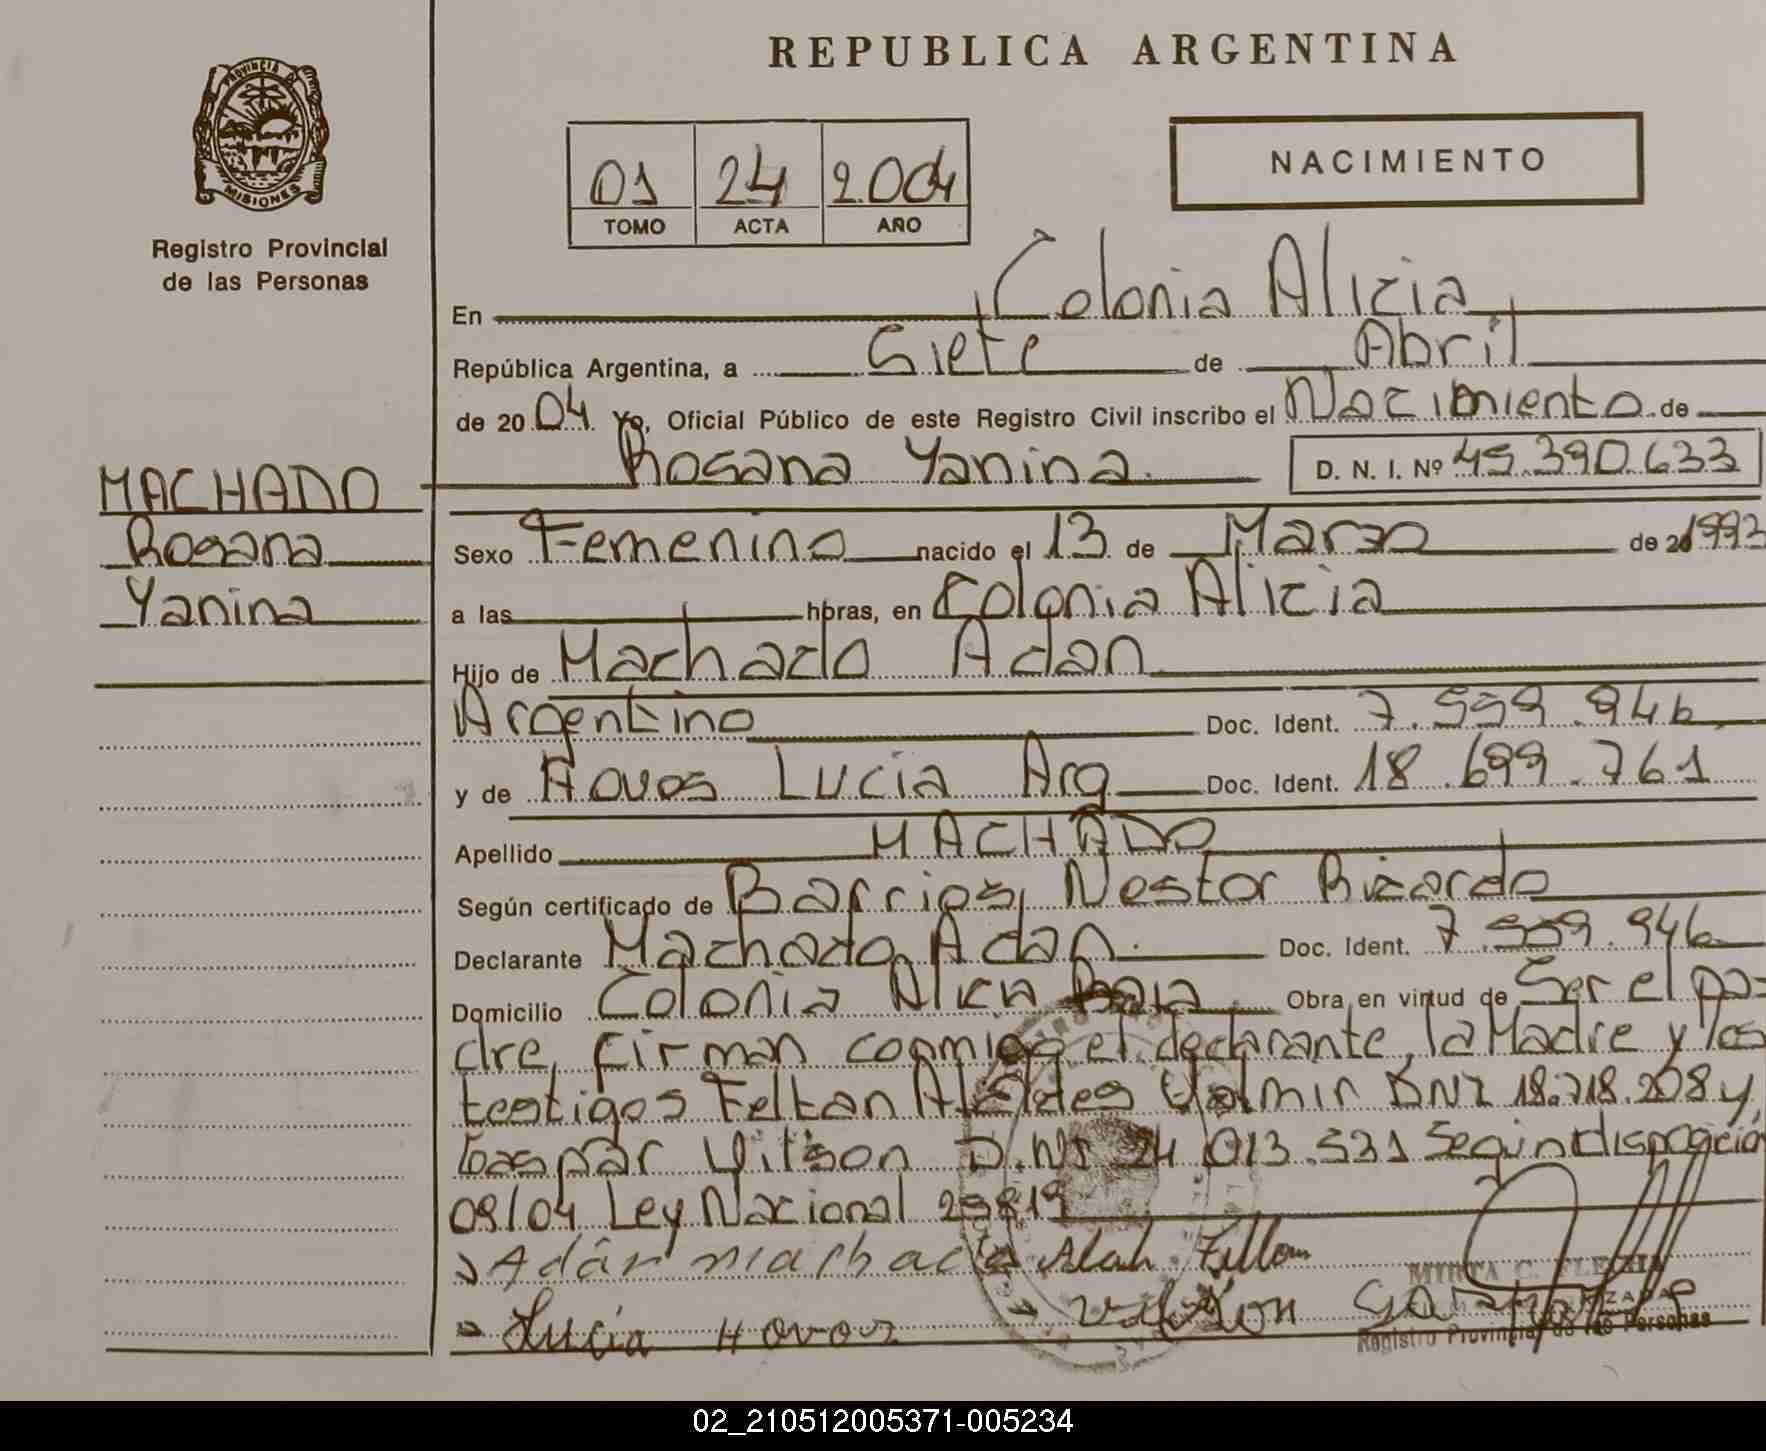 REPUBLICA ARGENTINA
PROVINCIA DE
MISIONES
Registro Provincial
de las Personas
01 24 2.004
TOMO ACTA AÑO
NACIMIENTO
En Colonia Alicia
República Argentina, a Siete de Abril
de 2004. Yo, Oficial Público de este Registro Civil inscribo el Nacimiento de
Rosana Yanina. D. N. I. Nº 45.390.633
MACHADO
Rosana
Yanina
Sexo Femenino nacido el 13 de Marzo de 20 1993
a las horas, en Colonia Alicia
Hijo de Machado Adan
Argentino Doc. Ident. 7.559.946
y de Hovos Lucia Arg Doc. Ident. 18.699.761
Apellido MACHADO
Según certificado de Barrios, Nestor Ricardo
Declarante Machado, Adan. Doc. Ident. 7.559.946
Domicilio Colonia Alicia Baja Obra en virtud de Ser el pa-
dre, firman conmigo el declarante, la Madre y los
testigos Feltan Alcides Valmir DNI 18.718.208 y
Gaspar Vilson D.NI 24 013.531 Segun disposición
09/04 Ley Nacional 25819
Adán machado
Lucia Hovos
MIRTA C.
Registro Provincial de las Personas
02_210512005371-005234